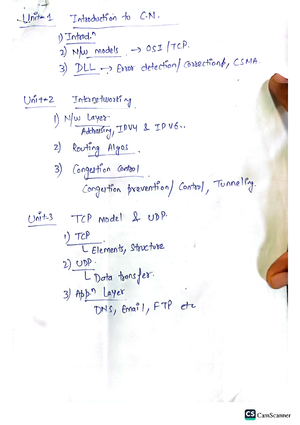 Unit-1 Introduction to C.N.
1) Introdⁿ
2) N/w models → OSI/TCP.
3) DLL → Error detection/Correction, CSMA.
Unit-2 Internetworking
1) N/w Layer
Addressing, IPV4 & IPV6..
2) Routing Algos
3) Congestion Control
Congestion prevention/Control, Tunneling.
Unit-3 TCP model & UDP.
1) TCP
Elements, Structure
2) UDP
Data transfer.
3) Appⁿ Layer
DNS, Email, FTP etc
CS CamScanner